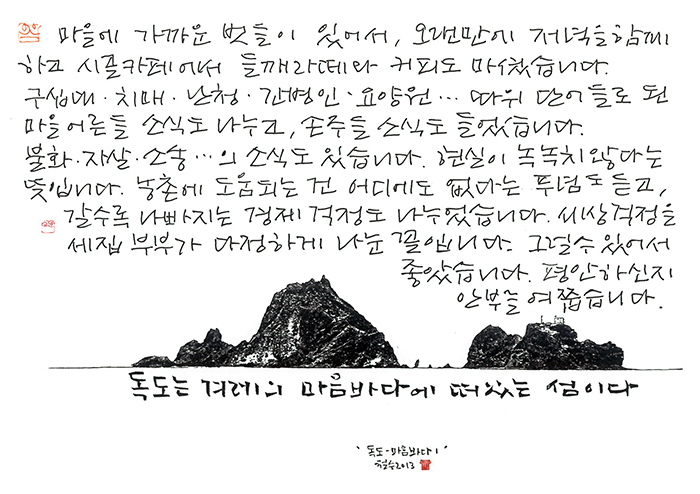 마을에 가까운 벗들이 있어서, 오랜만에 저녁을 함께
하고 시골카페에서 들깨라떼와 커피도 마셨습니다.
구십대·치매·난청·간병인·요양원… 따위 단어들로 된
마을어른들 소식도 나누고, 손주들 소식도 들었습니다.
불화·자살·소송…의 소식도 있습니다. 현실이 녹녹치 않다는
뜻입니다. 농촌에 도움되는 건 어디에도 없다는 푸념도 듣고,
갈수록 나빠지는 경제 걱정도 나누었습니다. 세상걱정을
세집 부부가 다정하게 나눈 꼴입니다. 그럴수 있어서
좋았습니다. 평안하신지
안부를 여쭙습니다.
독도는 겨레의 마음바다에 떠있는 섬이다
'독도-마음바다 1'
철수 2013